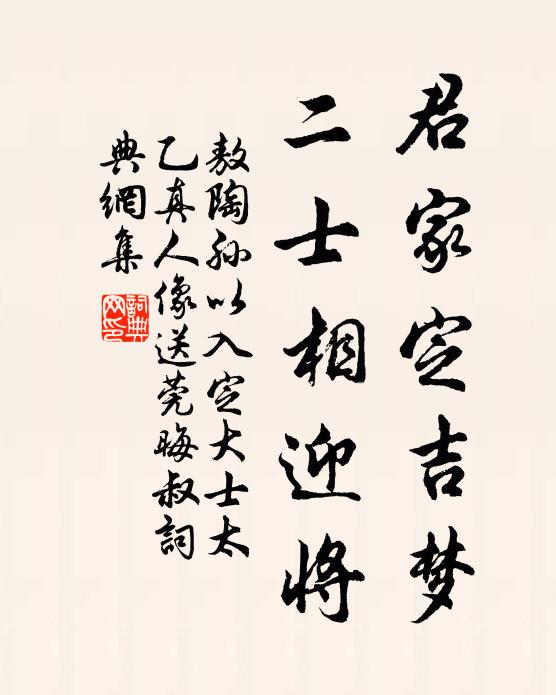 君家定吉梦
二士相迎将
敖陶孙以入定大士太
乙真人像送莞晦叔詞
典網集
詞典网印